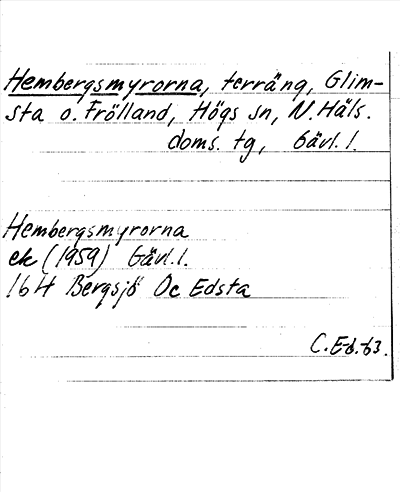 Hembergsmyrorna, terräng, Glim-
sta o. Frölland, Högs sn, N. Häls.
doms. tg, Gävl. l.
Hembergsmyrorna
ek (1959) Gävl. l.
16H Bergsjö Öc Edsta
C. E-b. -63.